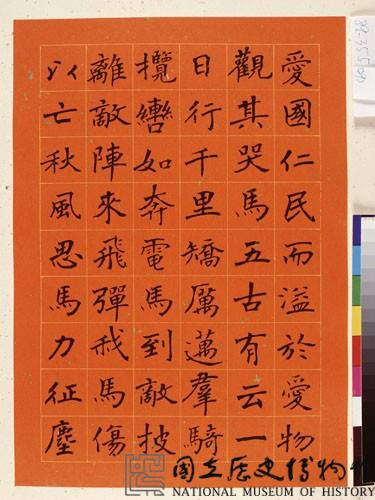 愛國仁民而溢於愛物
觀其哭馬五古有云一
日行千里矯厲邁羣騎
攬轡如奔電馬到敵披
離敵陣來飛彈我馬傷
以亡秋風思馬力征塵
國立歷史博物館
NATIONAL MUSEUM OF HISTORY